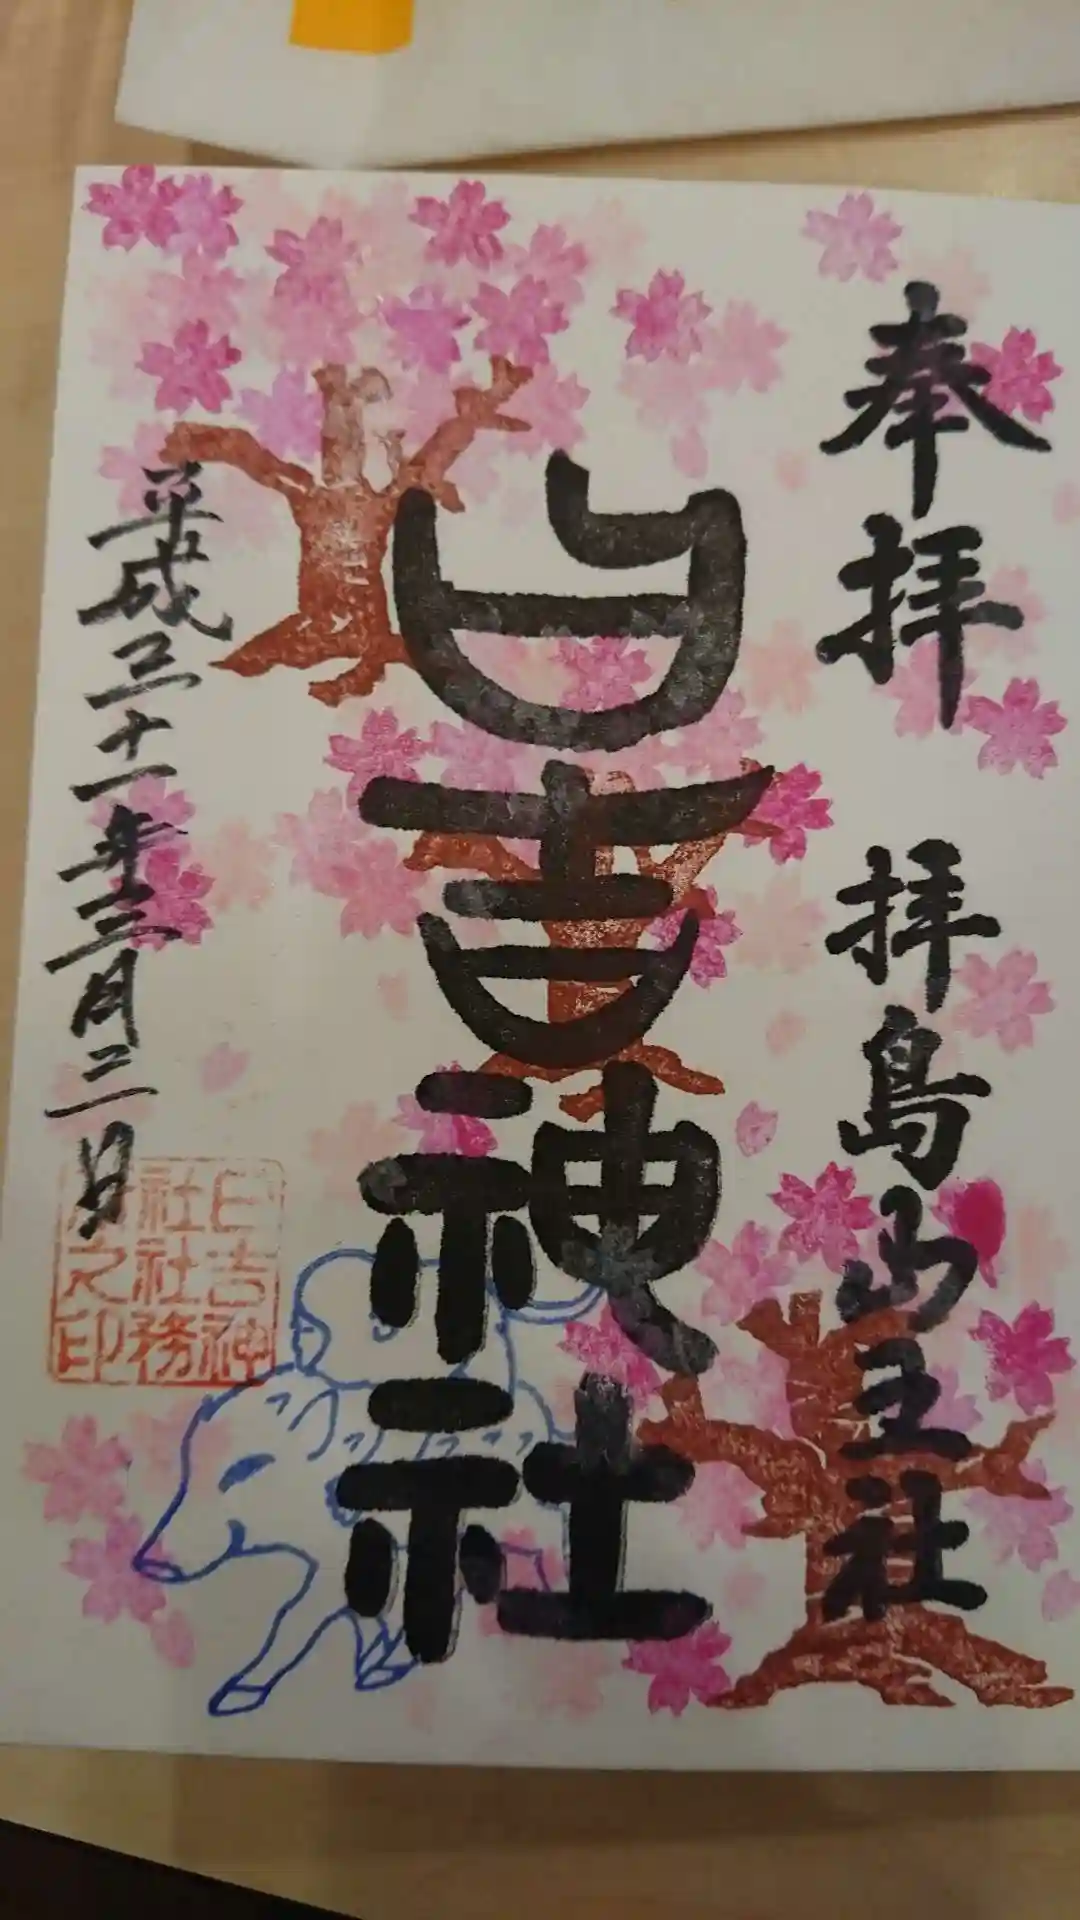 奉拝 拝島山王社
日吉神社
平成三十一年三月三日
日吉神
社社務
所之印